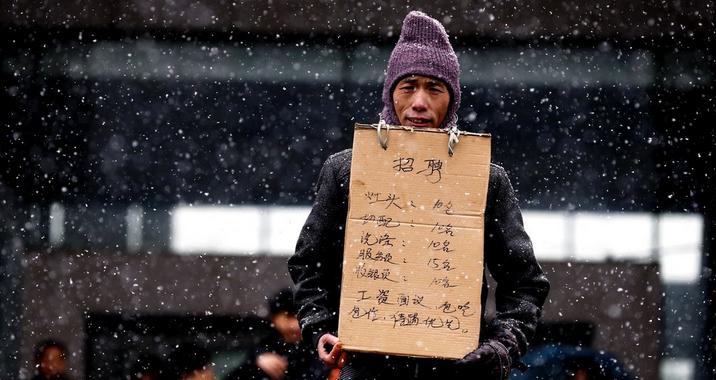 招聘
灶头: 10名
切配: 10名
洗涤: 10名
服务员: 15名
收银员: 10名
工资面议, 包吃
包住, 待遇优先。